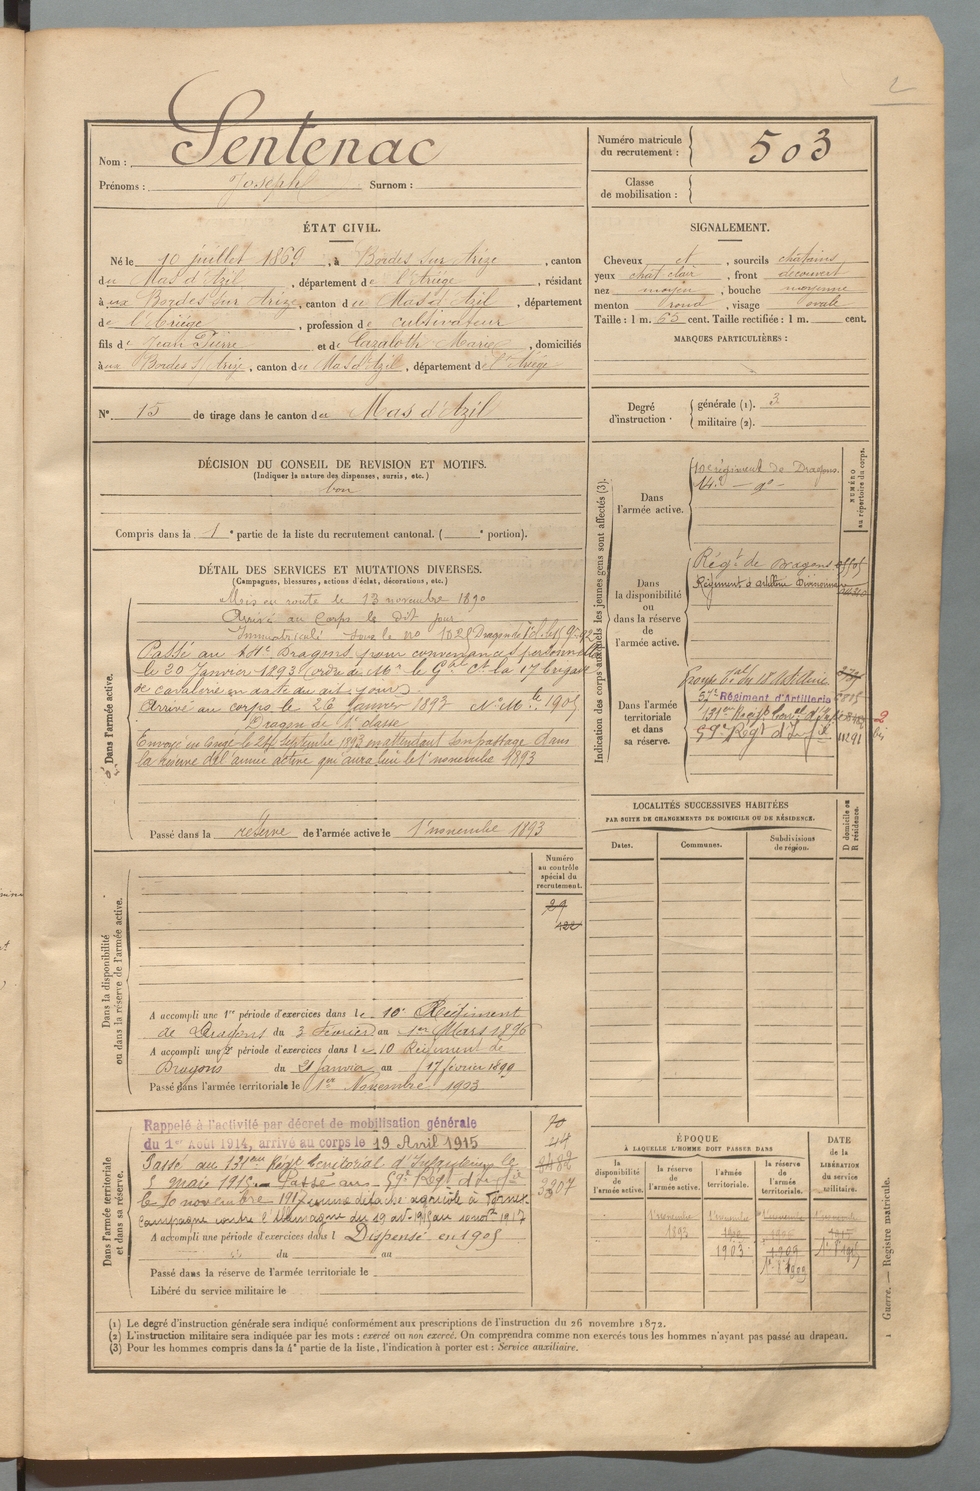 2
Nom : Sentenac
Prénoms : Joseph Surnom :
Numéro matricule du recrutement : 503
Classe de mobilisation :
ÉTAT CIVIL.
Né le 10 juillet 1869, à Bordes sur Arize, canton
du Mas d'Azil, département de l'Ariège, résidant
à aux Bordes sur Arize, canton du Mas d'Azil, département
de l'Ariège, profession de cultivateur
fils de Jean Pierre et de Cazaloth Marie, domiciliés
à aux Bordes s/ Arize, canton du Mas d'Azil, département de l'Ariège
N° 15 de tirage dans le canton du Mas d'Azil
SIGNALEMENT.
Cheveux et, sourcils châtains
yeux chat clair, front découvert
nez moyen, bouche moyenne
menton rond, visage ovale
Taille : 1 m. 65 cent. Taille rectifiée : 1 m. cent.
MARQUES PARTICULIÈRES :
Degré d'instruction
générale (1). 3
militaire (2).
DÉCISION DU CONSEIL DE REVISION ET MOTIFS.
(Indiquer la nature des dispenses, sursis, etc.)
bon
Compris dans la 1e partie de la liste du recrutement cantonal. ( e portion).
DÉTAIL DES SERVICES ET MUTATIONS DIVERSES.
(Campagnes, blessures, actions d'éclat, décorations, etc.)
Dans l'armée active.
Mis en route le 13 novembre 1890
Arrivé au Corps le dit jour
Immatriculé sous le no 1028 Dragon de
Passé au 14e Dragons pour convenances personnelles
le 20 Janvier 1893 (ordre du Mr le Gal Ct la 17 brigade
de cavalerie en date du
Arrivé au corps le 26 Janvier 1893 No Mle 1905
Dragon de 1e classe
Envoyé en congé le 24 Septembre 1893 en attendant son passage dans
la réserve de l'armée active qui aura lieu le 1 novembre 1893
Passé dans la réserve de l'armée active le 1 novembre 1893
Indication des corps auxquels les jeunes gens sont affectés (3).
NUMÉRO au répertoire du corps.
Dans l'armée active.
10e régiment de Dragons
14e — do —
Dans la disponibilité ou dans la réserve de l'armée active.
Régt de Dragons
Régiment d'artillerie Divisionnaire
Dans l'armée territoriale et dans sa réserve.
Groupe tal du 18 artillerie
57e Régiment d'Artillerie
131e Régt
59e Régt d'Infie
2 bis
LOCALITÉS SUCCESSIVES HABITÉES
PAR SUITE DE CHANGEMENTS DE DOMICILE OU DE RÉSIDENCE.
D domicile ou R résidence.
Dates.
Communes.
Subdivisions de région.
Dans la disponibilité ou dans la réserve de l'armée active.
Numéro au contrôle spécial du recrutement.
29
122
A accompli une 1re période d'exercices dans le 10e Régiment
de Dragons du 3 Février au 1er Mars 1896
A accompli une 2e période d'exercices dans le 10 Régiment de
Dragons du 21 janvier au 17 février 1899
Passé dans l'armée territoriale le 1er Novembre 1903
Dans l'armée territoriale et dans sa réserve.
Rappelé à l'activité par décret de mobilisation générale
du 1er Août 1914, arrivé au corps le 19 Avril 1915
Passé au 131eme Régt territorial d'Infanterie le
5 mai 1915. — Passé au 59e Régt d'Infie
le 10 novembre 1917 comme détaché agricole à Fornex
Campagne contre l'Allemagne du 19 avl 1915 au 10 novbre 1917
A accompli une période d'exercices dans l Dispensé en 1905
du au
Passé dans la réserve de l'armée territoriale le
Libéré du service militaire le
70
44
3307
ÉPOQUE
À LAQUELLE L'HOMME DOIT PASSER DANS
la disponibilité de l'armée active.
la réserve de l'armée active.
l'armée territoriale.
la réserve de l'armée territoriale.
DATE de la LIBÉRATION du service militaire.
1 novembre 1893
1903
1909
(1) Le degré d'instruction générale sera indiqué conformément aux prescriptions de l'instruction du 26 novembre 1872.
(2) L'instruction militaire sera indiquée par les mots : exercé ou non exercé. On comprendra comme non exercés tous les hommes n'ayant pas passé au drapeau.
(3) Pour les hommes compris dans la 4e partie de la liste, l'indication à porter est : Service auxiliaire.
Guerre. — Registre matricule.